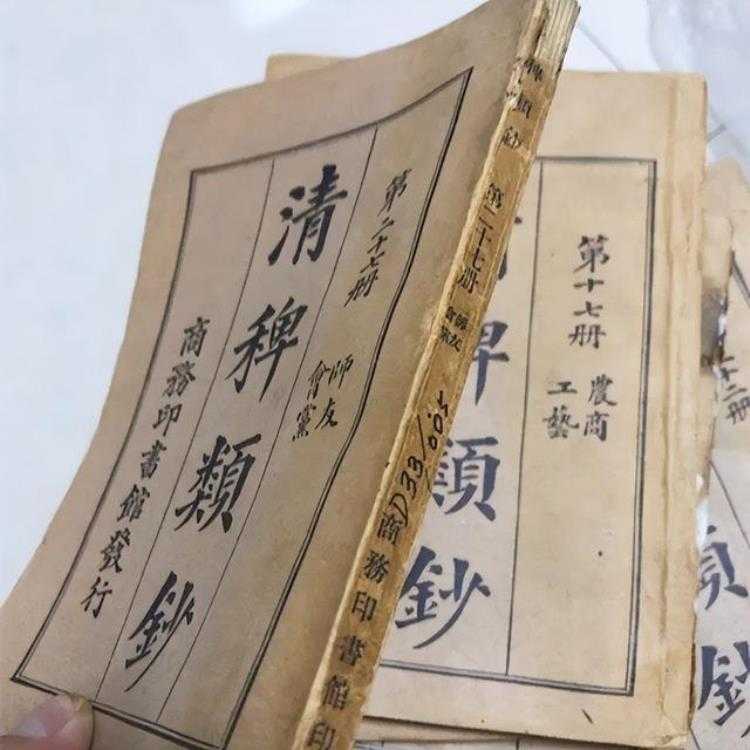 第二十七册
師友
會黨
清稗類鈔
商務印書館發行
稗類鈔
第二十七册
師友
會黨
D33/005
商務印書館印
第十七册
農商
工藝
稗類鈔
十二册
類鈔